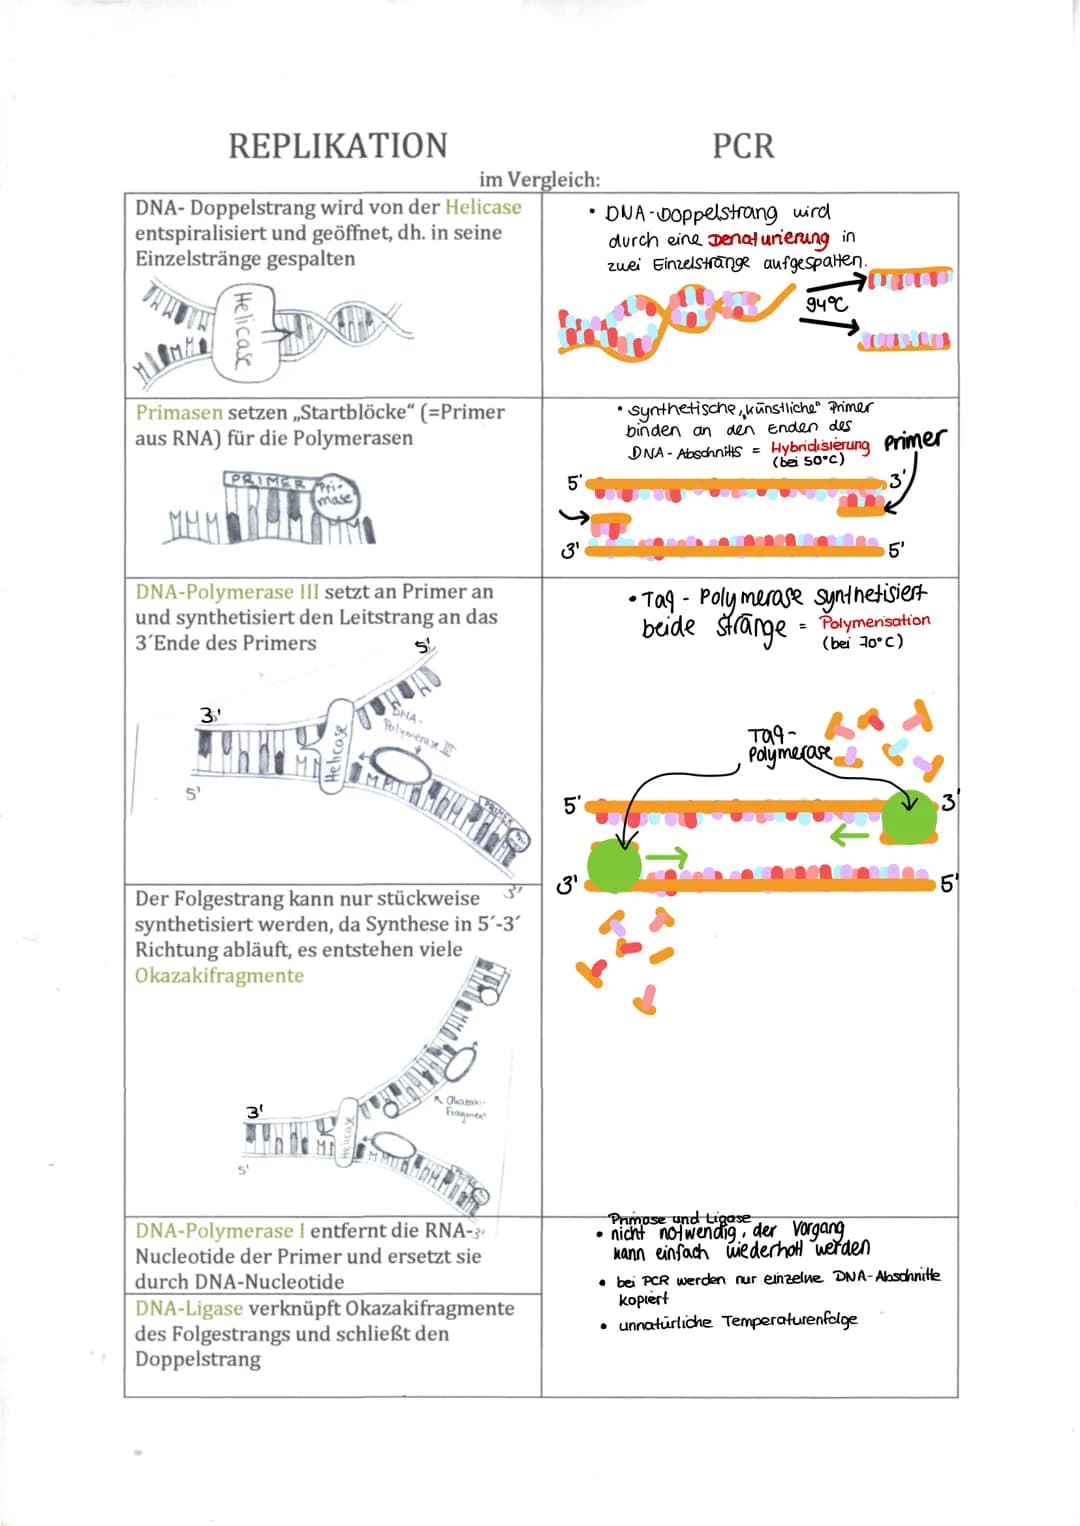 REPLIKATION
PCR
im Vergleich:
DNA- Doppelstrang wird von der Helicase
entspiralisiert und geöffnet, dh. in seine
Einzelstränge gespalten
Helicase
• DNA-Doppelstrang wird
durch eine Denaturierung in
zwei Einzelstränge aufgespalten.
94°C
Primasen setzen „Startblöcke“ (=Primer
aus RNA) für die Polymerasen
PRIMER
Pri-
mase
• synthetische „künstliche“ Primer
binden an den Enden des
DNA-Abschnitts = Hybridisierung
(bei 50°C)
Primer
5'
3'
3'
5'
DNA-Polymerase III setzt an Primer an
und synthetisiert den Leitstrang an das
3´Ende des Primers
5'
3'
DNA-
Polymerase III
Helicase
5'
PRIMER
3'
• Taq-Polymerase synthetisiert
beide Stränge = Polymerisation
(bei 70°C)
Taq-
Polymerase
5'
3'
3'
5'
Der Folgestrang kann nur stückweise
synthetisiert werden, da Synthese in 5´-3´
Richtung abläuft, es entstehen viele
Okazakifragmente
Okazaki-
Fragment
3'
Helicase
5'
3'
DNA-Polymerase I entfernt die RNA-
Nucleotide der Primer und ersetzt sie
durch DNA-Nucleotide
DNA-Ligase verknüpft Okazakifragmente
des Folgestrangs und schließt den
Doppelstrang
Primase und Ligase
• nicht notwendig, der Vorgang
kann einfach wiederholt werden
• bei PCR werden nur einzelne DNA-Abschnitte
kopiert
• unnatürliche Temperaturenfolge